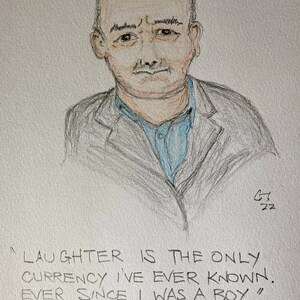 22
"LAUGHTER IS THE ONLY
CURRENCY I'VE EVER KNOWN.
EVER SINCE I WAS A BOY."